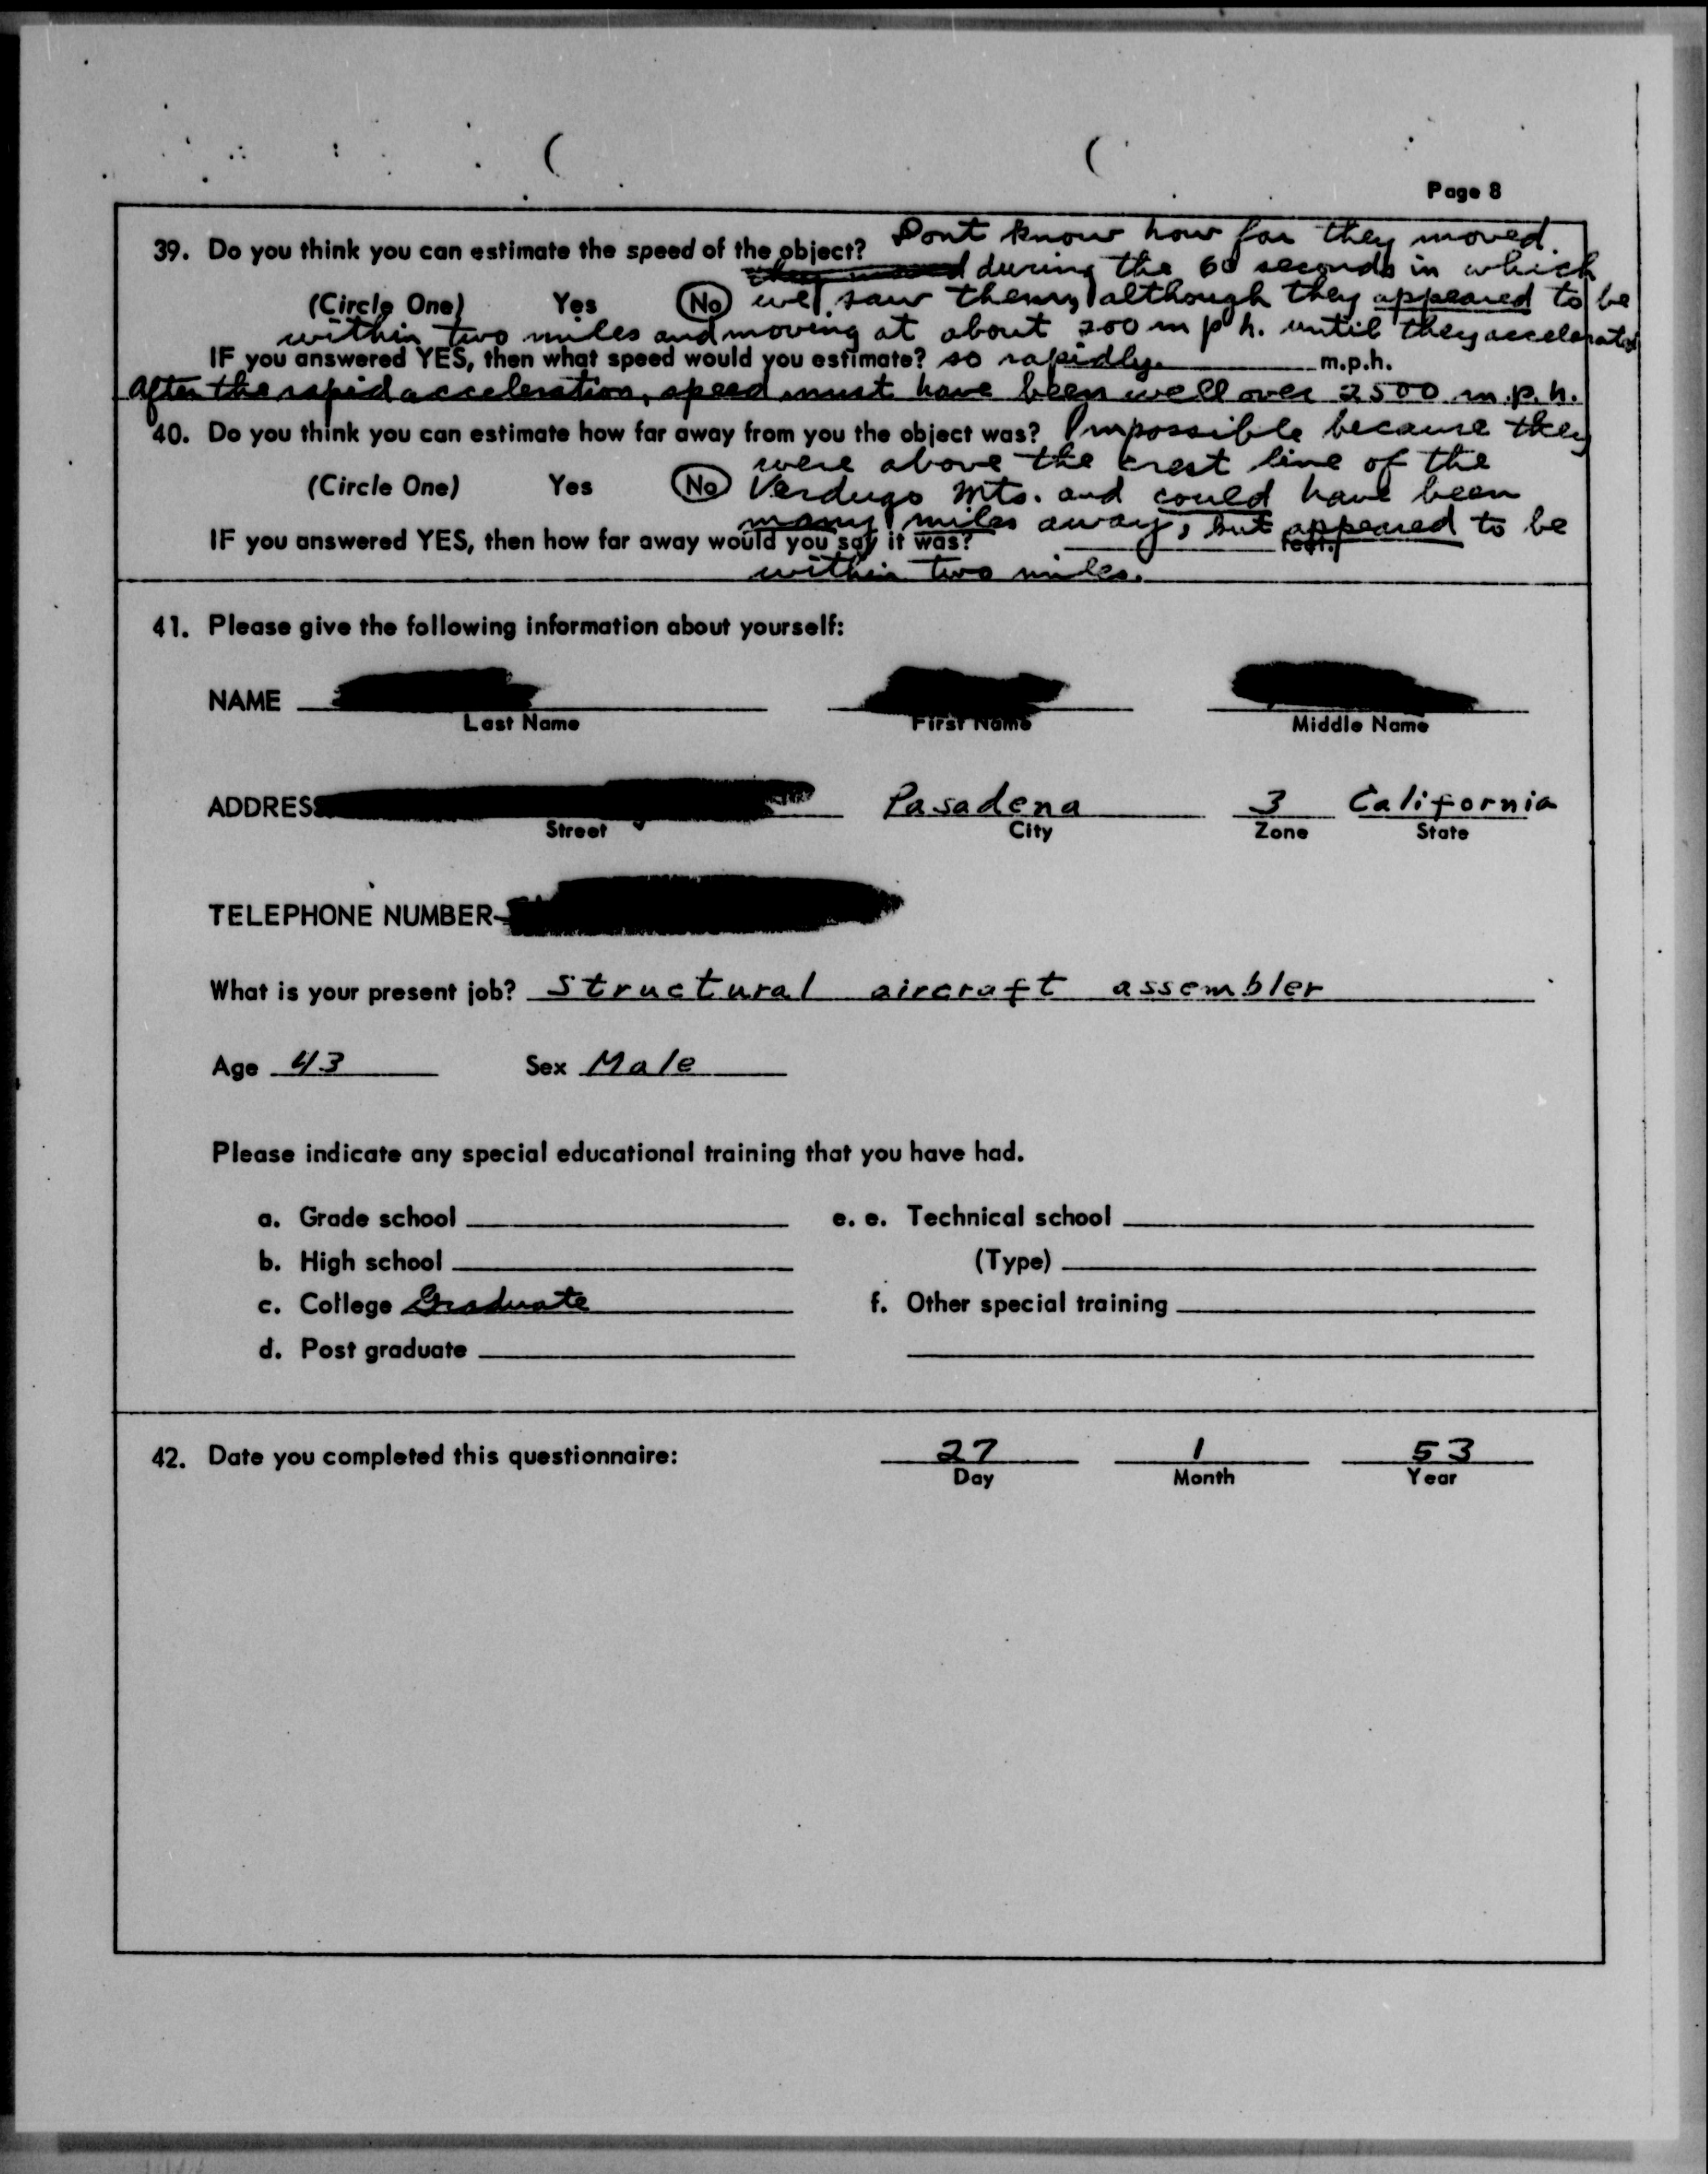 Page 8
39. Do you think you can estimate the speed of the object? Dont know how far they moved.
they moved during the 60 seconds in which
(Circle One) Yes No we saw them, although they appeared to be
within two miles and moving at about 200 m p h. until they accelerated
IF you answered YES, then what speed would you estimate? so rapidly. m.p.h.
After the rapid acceleration, speed must have been well over 2500 m.p.h.
40. Do you think you can estimate how far away from you the object was? Impossible because they
were above the crest line of the
(Circle One) Yes No Verdugo Mts. and could have been
many miles away, but appeared to be
IF you answered YES, then how far away would you say it was? feet.
within two miles.
41. Please give the following information about yourself:
NAME
Last Name First Name Middle Name
ADDRESS Pasadena 3 California
Street City Zone State
TELEPHONE NUMBER
What is your present job? Structural aircraft assembler
Age 43 Sex Male
Please indicate any special educational training that you have had.
a. Grade school e. e. Technical school
b. High school (Type)
c. College Graduate f. Other special training
d. Post graduate
42. Date you completed this questionnaire: 27 1 53
Day Month Year